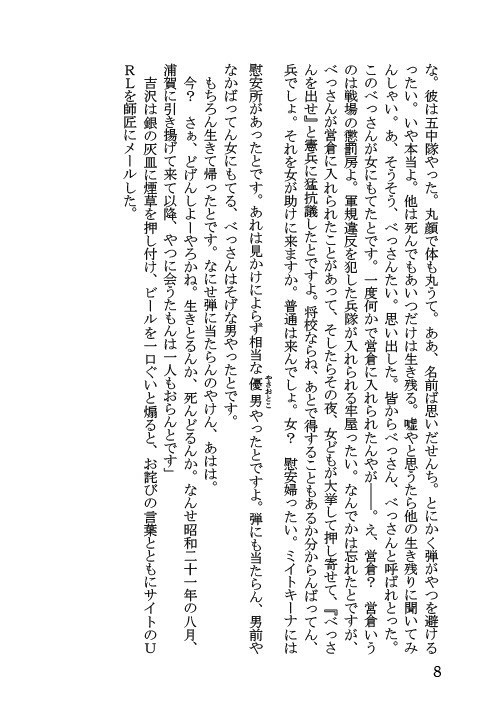 な。彼は五中隊やった。丸顔で体も丸うて。ああ、名前ば思いだせんち。とにかく弾がやつを避ける
ったい。いや本当よ。他は死んでもあいつだけは生き残る。嘘やと思うたら他の生き残りに聞いてみ
んしゃい。あ、そうそう、べっさんたい。思い出した。皆からべっさん、べっさんと呼ばれとった。
このべっさんが女にもてたとです。一度何かで営倉に入れられたんやが――。え、営倉？　営倉いう
のは戦場の懲罰房よ。軍規違反を犯した兵隊が入れられる牢屋ったい。なんでかは忘れたとですが、
べっさんが営倉に入れられたことがあって、そしたらその夜、女どもが大挙して押し寄せて、『べっさ
んを出せ』と憲兵に猛抗議したとですよ。将校ならね、あとで得することもあるか分からんばってん、
兵でしょ。それを女が助けに来ますか。普通は来んでしょ。女？　慰安婦ったい。ミイトキーナには
慰安所があったとです。あれは見かけによらず相当な優男やったとですよ。弾にも当たらん、男前や
やさおとこ
なかばってん女にもてる、べっさんはそげな男やったとです。
もちろん生きて帰ったとです。なにせ弾に当たらんのやけん、あはは。
今？　さぁ、どげんしよーやろかね。生きとるんか、死んどるんか。なんせ昭和二十一年の八月、
浦賀に引き揚げて来て以降、やつに会うたもんは一人もおらんとです」
吉沢は銀の灰皿に煙草を押し付け、ビールを一口ぐいと煽ると、お詫びの言葉とともにサイトのU
RLを師匠にメールした。
8